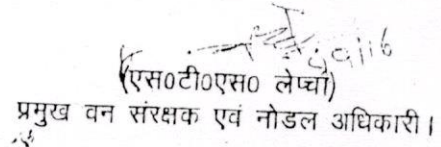 (एस0टी0एस0 लेप्चा)
प्रमुख वन संरक्षक एवं नोडल अधिकारी।